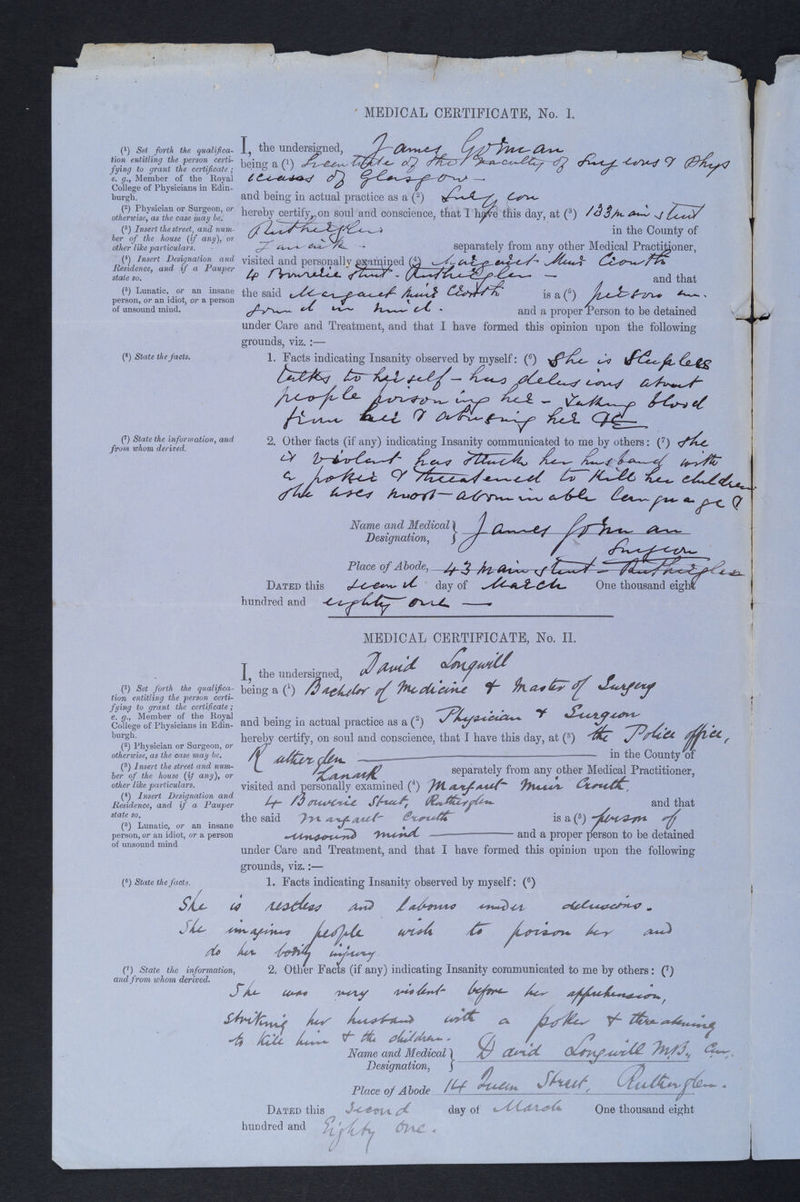 MEDICAL CERTIFICATE, No. I.
(1) Set forth the qualifica-
tion entitling the person certi-
fying to grant the certificate;
e. g., Member of the Royal
College of Physicians in Edin-
burgh.
(2) Physician or Surgeon, or
otherwise, as the case may be.
(3) Insert the street, and num-
ber of the house (if any), or
other like particulars.
(4) Insert Designation and
Residence, and if a Pauper
state so.
(5) Lunatic, or an insane
person, or an idiot, or a person
of unsound mind.
I, the undersigned, James Gorman
being a (1) Licentiate of the Faculty of Surgeons & Phys
icians of Glasgow —
and being in actual practice as a (2) Surgeon
hereby certify, on soul and conscience, that I have this day, at (3) Main Street
Rutherglen in the County of
Lanark - separately from any other Medical Practitioner,
visited and personally examined (4) Margaret Muir Crouth
4 Street - Rutherglen — and that
the said Margaret Muir Crouth is a (5) person un-
sound in mind - and a proper Person to be detained
under Care and Treatment, and that I have formed this opinion upon the following
grounds, viz. :—
(6) State the facts.
1. Facts indicating Insanity observed by myself: (6) She is Sleepless
talks to herself - has delusions about
people poisoning her - Taking blood
from her & abusing her &c
(7) State the information, and
from whom derived.
2. Other facts (if any) indicating Insanity communicated to me by others: (7) She
is violent has struck her husband with
a poker & threatened to kill her children
She uses most abominable language &
Name and Medical
Designation, James Gorman
Surgeon
Place of Abode, 43 Main Street - Rutherglen
DATED this second day of March One thousand eight
hundred and eighty one —
MEDICAL CERTIFICATE, No. II.
(1) Set forth the qualifica-
tion entitling the person certi-
fying to grant the certificate;
e. g., Member of the Royal
College of Physicians in Edin-
burgh.
(2) Physician or Surgeon, or
otherwise, as the case may be.
(3) Insert the street and num-
ber of the house (if any), or
other like particulars.
(4) Insert Designation and
Residence, and if a Pauper
state so.
(5) Lunatic, or an insane
person, or an idiot, or a person
of unsound mind
I, the undersigned, David Longwill
being a (1) Bachelor of Medicine & Master of Surgery
and being in actual practice as a (2) Physician & Surgeon
hereby certify, on soul and conscience, that I have this day, at (3) the Police office,
Rutherglen — in the County of
Lanark separately from any other Medical Practitioner,
visited and personally examined (4) Margaret Muir Crouth,
4 Bouverie Street, Rutherglen and that
the said Margaret Crouth is a (5) person of
unsound mind — and a proper person to be detained
under Care and Treatment, and that I have formed this opinion upon the following
grounds, viz. :—
(6) State the facts.
1. Facts indicating Insanity observed by myself: (6)
She is restless and labours under delusions.
She imagines people wish to poison her and
do her bodily injury.
(7) State the information,
and from whom derived.
2. Other Facts (if any) indicating Insanity communicated to me by others: (7)
She was very violent before her apprehension,
striking her husband with a poker & threatening
to kill him & the children.
Name and Medical
Designation, David Longwill M.B., C.M.
Place of Abode 14 Queen Street, Rutherglen.
DATED this second day of March One thousand eight
hundred and Eighty One.